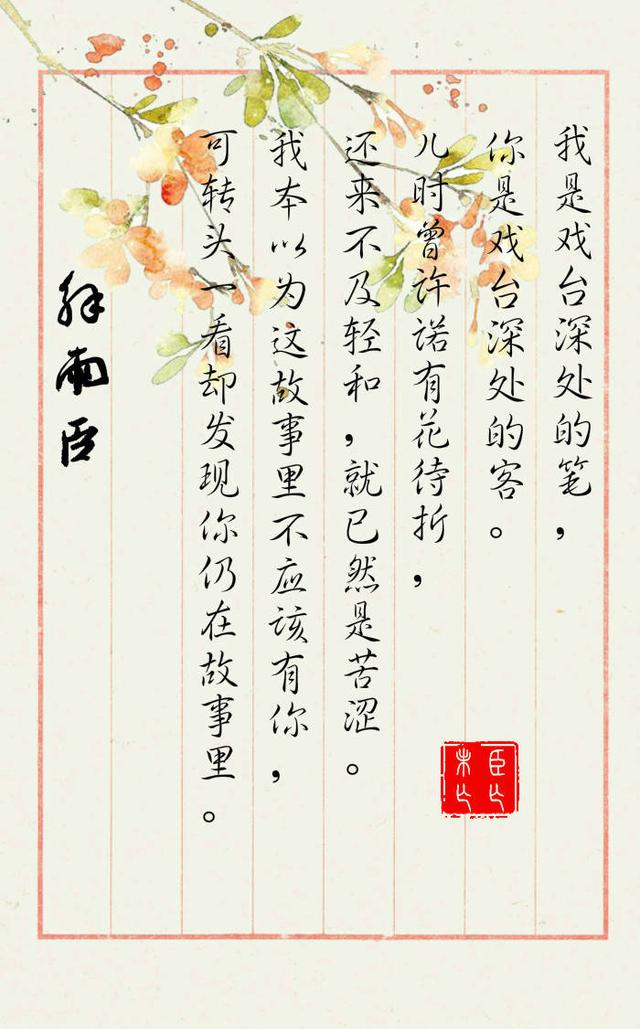 我是戏台深处的笔，
你是戏台深处的客。
儿时曾许诺有花待折，
还来不及轻和，就已然是苦涩。
我本以为这故事里不应该有你，
可转头一看却发现你仍在故事里。
解雨臣